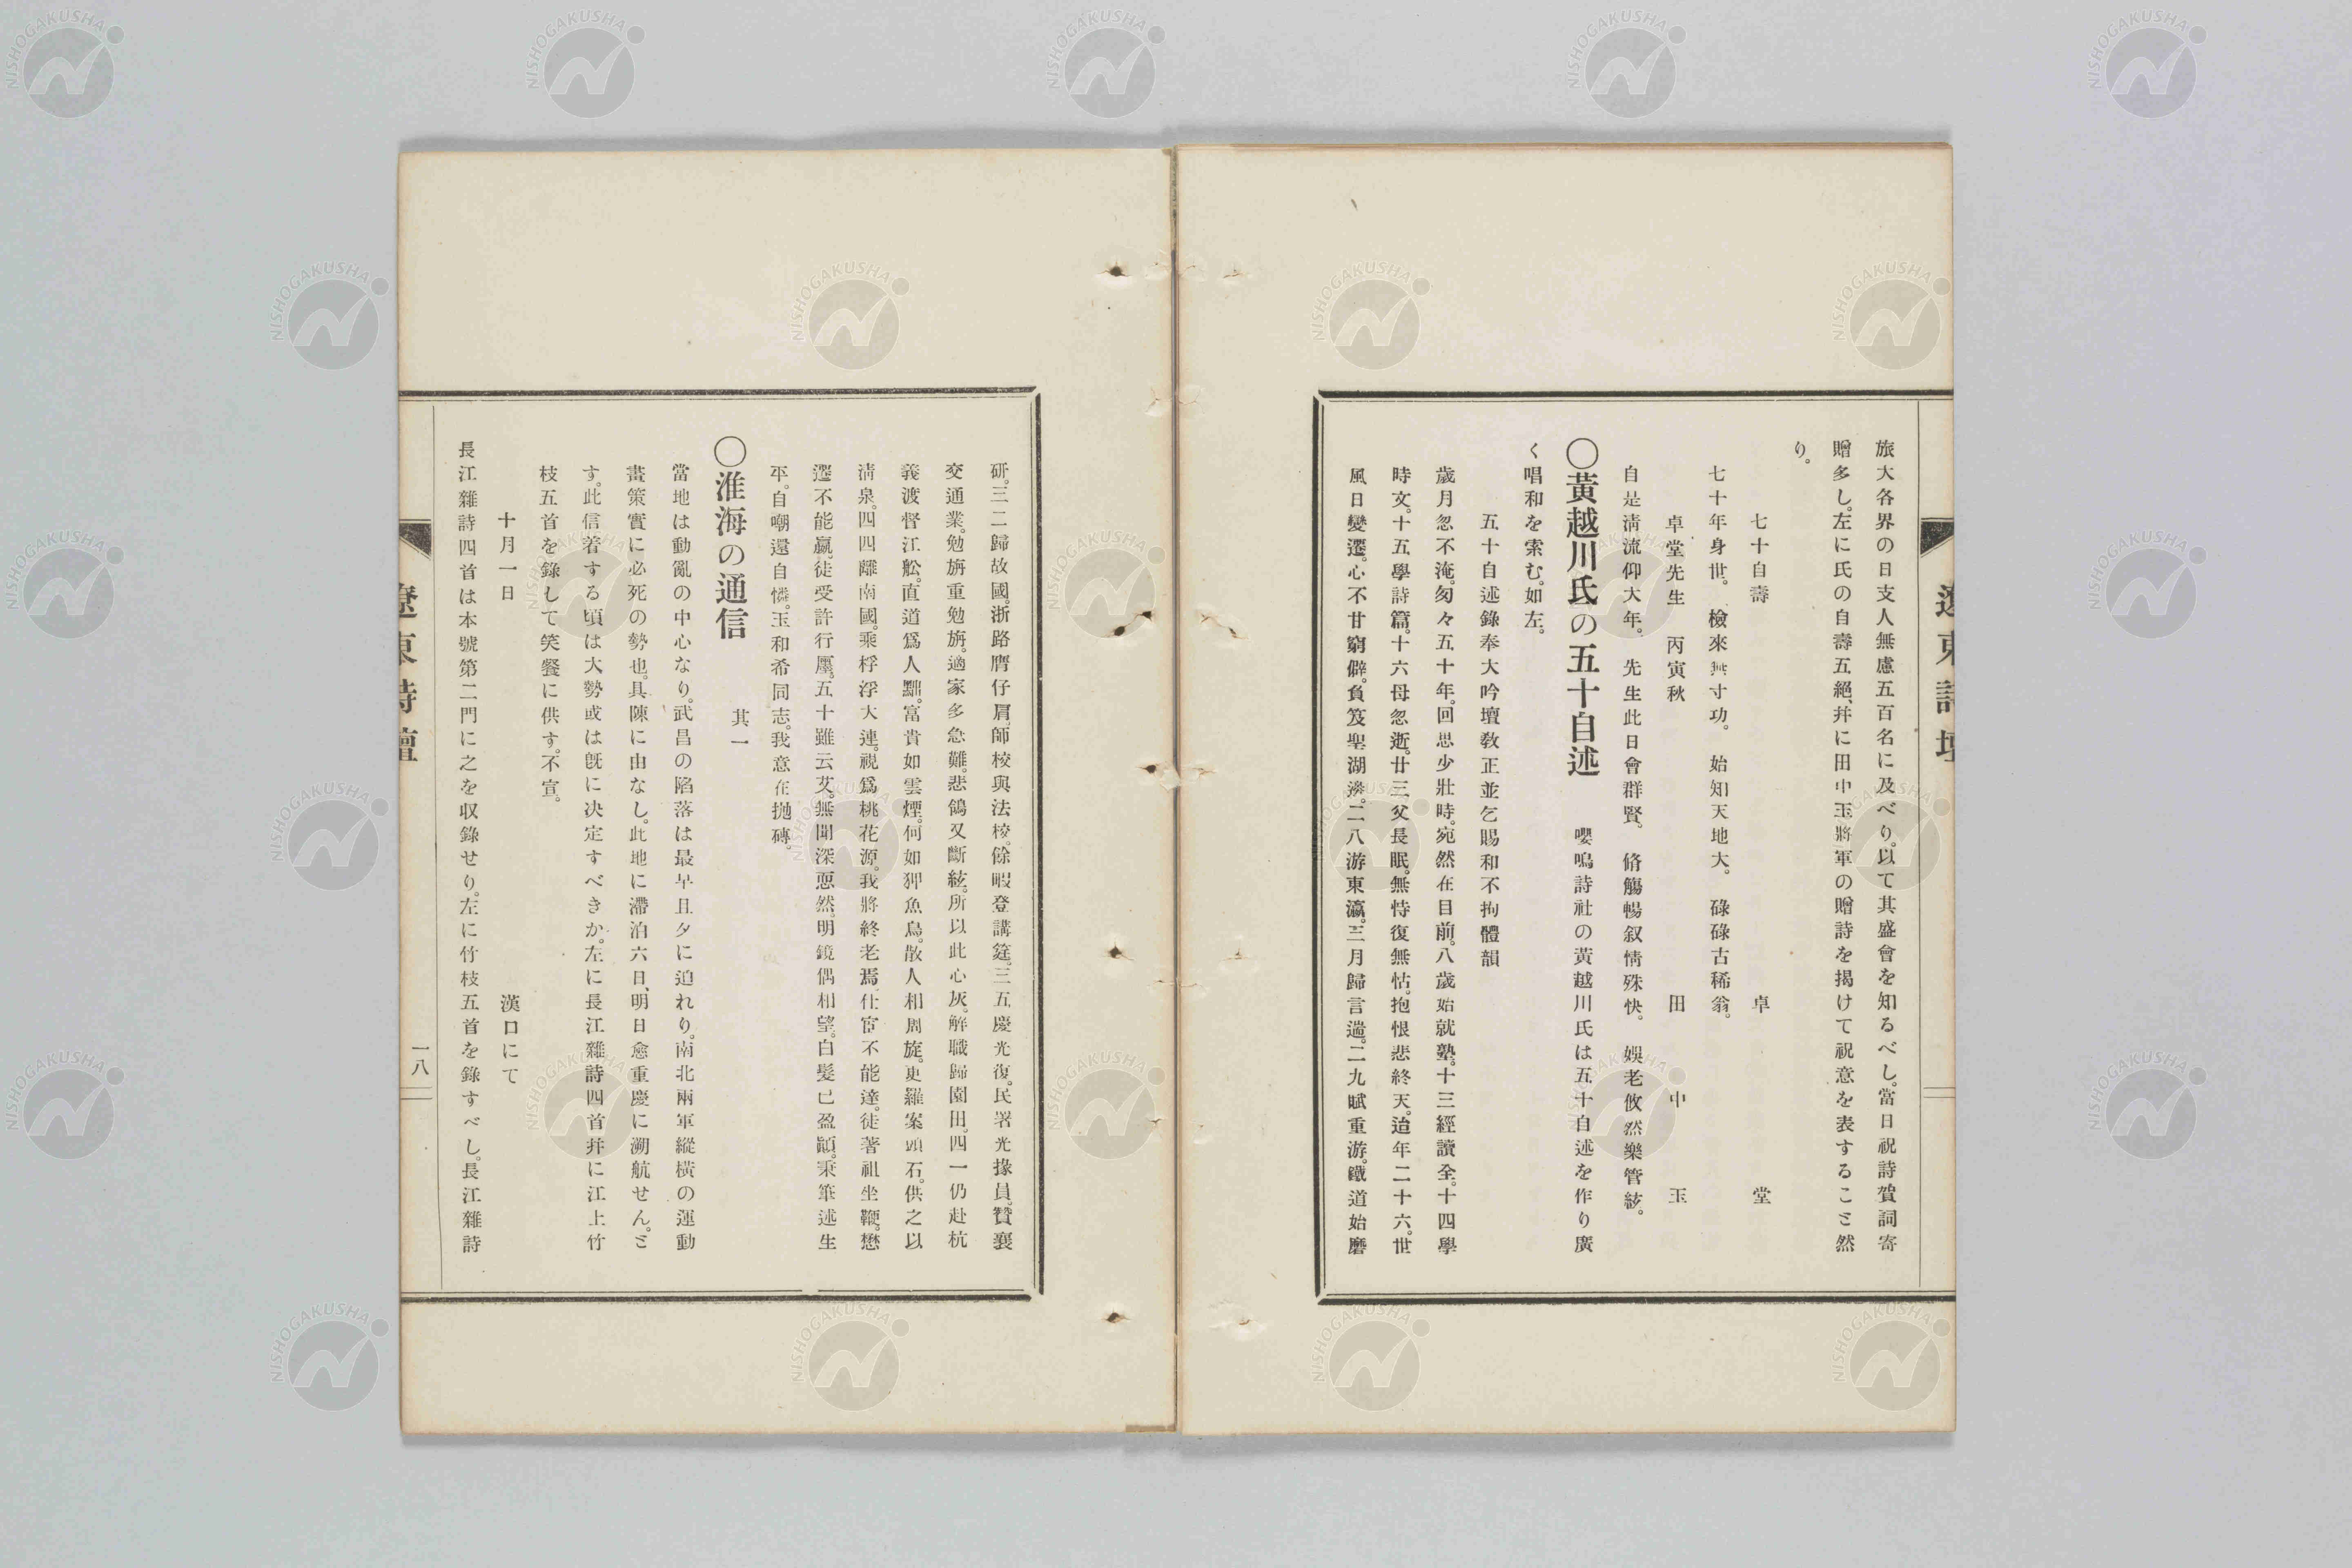 旅大各界の日支人無慮五百名に及べり。以て其盛會を知るべし。當日祝詩賀詞寄
贈多し。左に氏の自壽五絕、幷に田中玉將軍の贈詩を揭けて祝意を表することゝ然
り。
七十自壽　卓堂
七十年身世。檢來無寸功。始知天地大。碌碌古稀翁。
卓堂先生　丙寅秋　田中玉
自是淸流仰大年。先生此日會群賢。脩觴暢叙情殊快。娛老攸然樂管絃。
〇黃越川氏の五十自述　嚶鳴詩社の黃越川氏は五十自述を作り廣
く唱和を索む。如左。
五十自述錄奉大吟壇敎正並乞賜和不拘體韻
歲月忽不淹。匆々五十年。回思少壯時。宛然在目前。八歲始就塾。十三經讀全。十四學
時文。十五學詩篇。十六母忽逝。廿三父長眠。無恃復無怙。抱恨悲終天。迨年二十六。世
風日變遷。心不甘窮僻。負笈聖湖漈。二八游東瀛。三月歸言遄。二九賦重游。鐵道始磨
研。三二歸故國。浙路膺仔肩。師校與法校。餘暇登講筵。三五慶光復。民署光掾員。贊襄
交通業。勉旃重勉旃。適家多急難。悲鴒又斷絃。所以此心灰。解職歸園田。四一仍赴杭
義渡督江舩。直道爲人黜。富貴如雲煙。何如狎魚鳥。散人相周旋。更羅案頭石。供之以
淸泉。四四離南國。乘桴浮大連。視爲桃花源。我將終老焉。仕宦不能達。徒著祖生鞭。懋
遷不能贏。徒受許行廛。五十雖云艾。無聞深恧然。明鏡偶相望。白髮已盈顚。秉筆述生
平。自嘲還自憐。玉和希同志。我意在拋磚。
〇淮海の通信　其一
當地は動亂の中心なり。武昌の陷落は最早旦夕に迫れり。南北兩軍縱橫の運動
畫策實に必死の勢也。具陳に由なし。此地に滯泊六日、明日愈重慶に溯航せん。と
す。此信着する頃は大勢或は既に決定すべきか。左に長江雜詩四首幷に江上竹
枝五首を錄して笑餐に供す。不宣。
十月一日　漢口にて
長江雜詩四首は本號第二門に之を収錄せり。左に竹枝五首を錄すべし。長江雜詩
遼東詩壇
一八